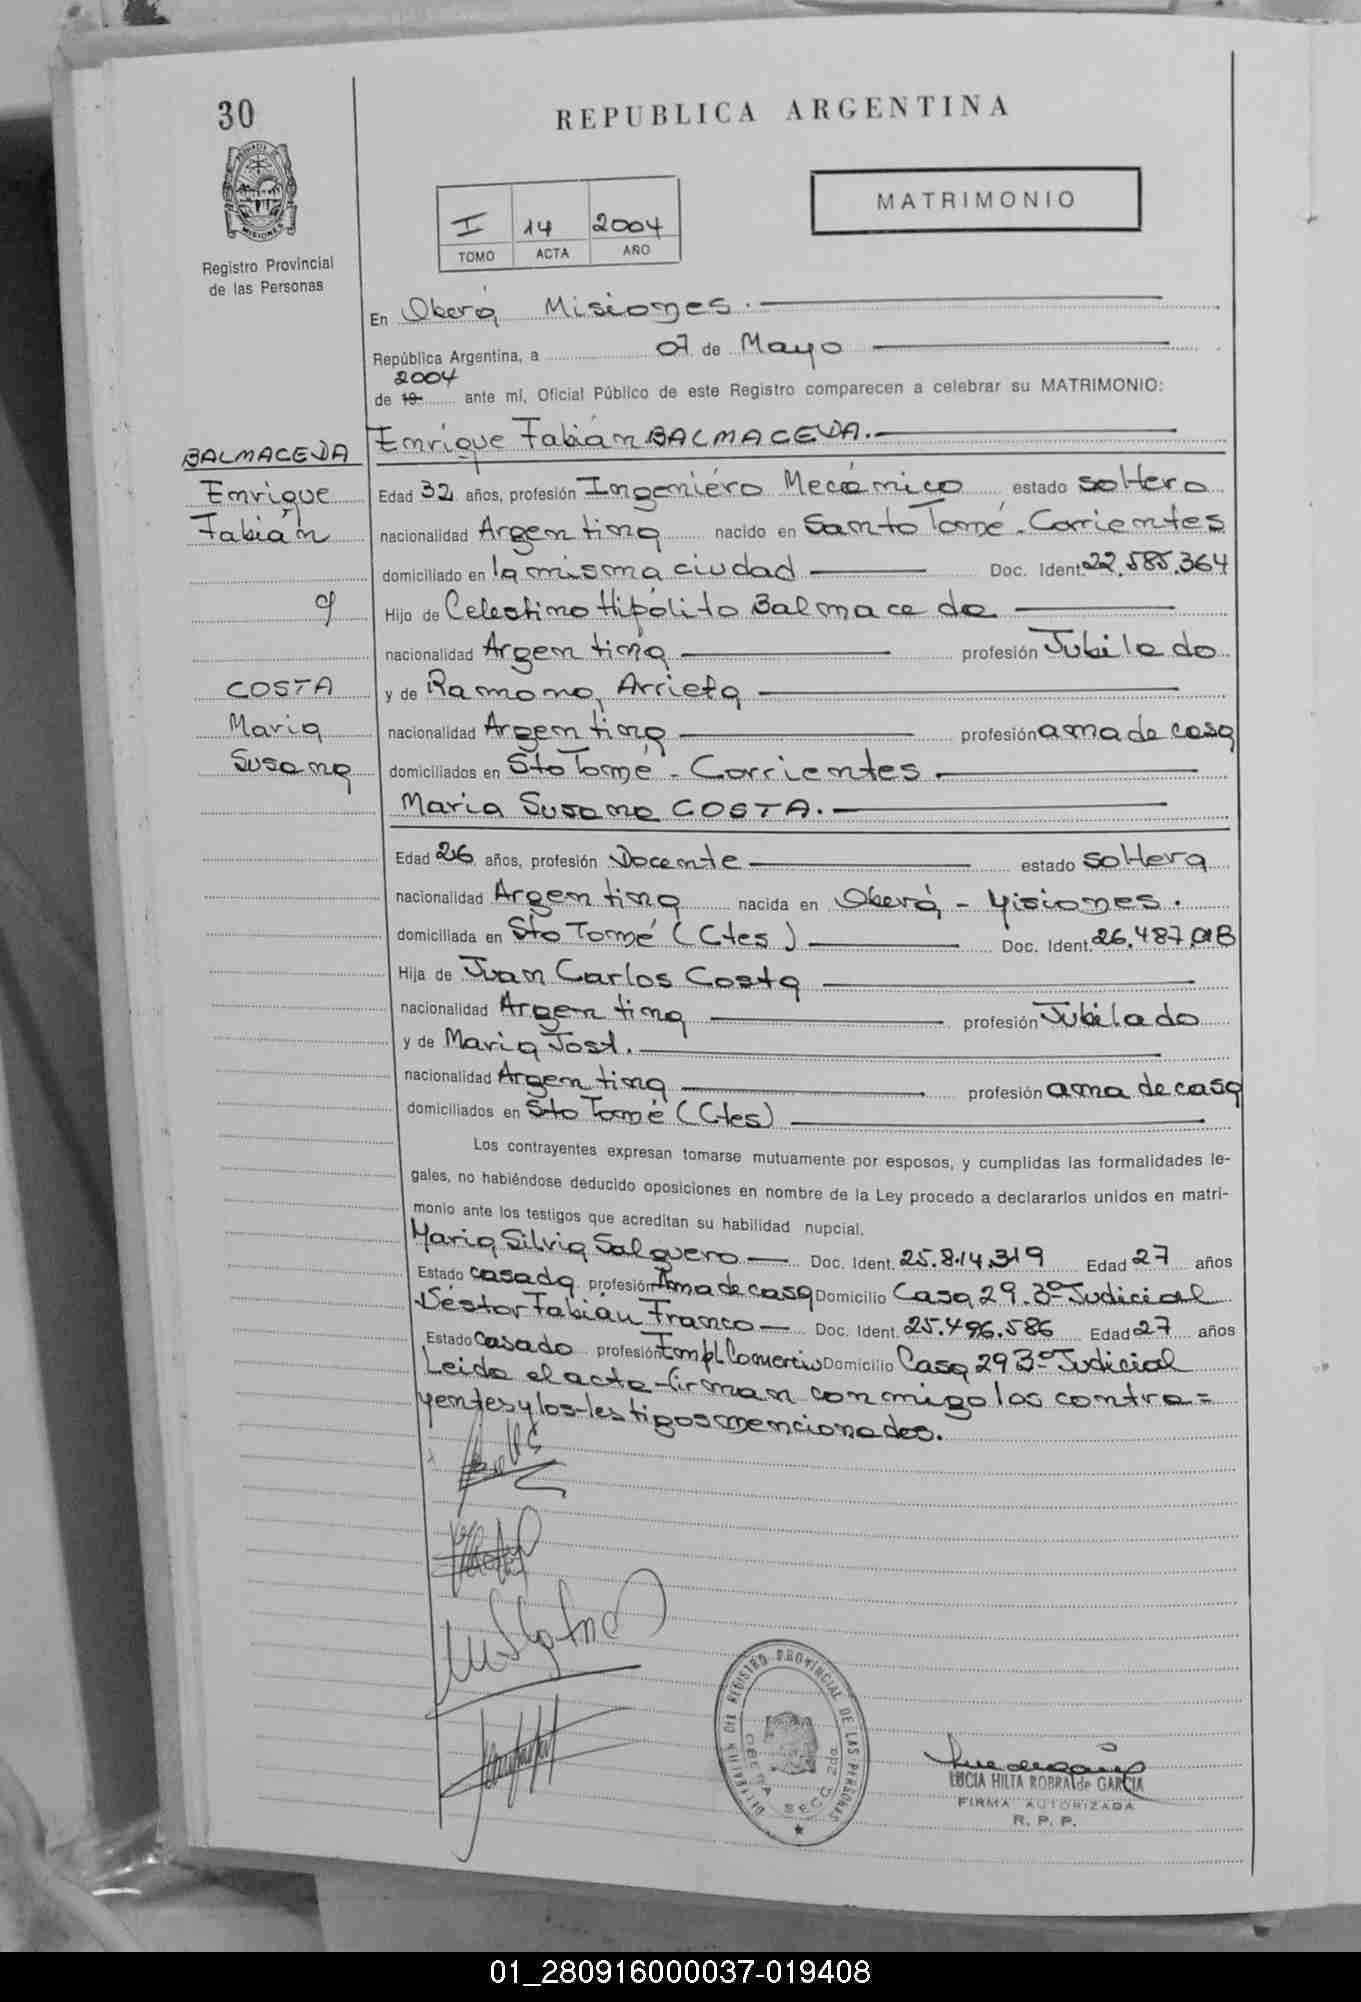 30
REPUBLICA ARGENTINA
MATRIMONIO
I 14 2004
TOMO ACTA AÑO
Registro Provincial
de las Personas
En Oberá Misiones.
República Argentina, a 07 de Mayo
2004
de 19 ante mí, Oficial Público de este Registro comparecen a celebrar su MATRIMONIO:
Enrique Fabián BALMACEDA.
BALMACEDA
Enrique
Fabián
Edad 32 años, profesión Ingeniéro Mecánico estado soltero
nacionalidad Argentina nacido en Santo Tomé - Corrientes
domiciliado en la misma ciudad Doc. Ident. 22.585.364
Hijo de Celestino Hipólito Balmaceda
nacionalidad Argentina profesión Jubilado
COSTA
Maria
Susana
y de Ramona Arrieta
nacionalidad Argentina profesión ama de casa
domiciliados en Sto Tomé - Corrientes
Maria Susana COSTA.
Edad 26 años, profesión Docente estado soltera
nacionalidad Argentina nacida en Oberá - Misiones.
domiciliada en Sto Tomé (Ctes) Doc. Ident.
Hija de Juan Carlos Costa
nacionalidad Argentina profesión Jubilado
y de Maria Jost.
nacionalidad Argentina profesión ama de casa
domiciliados en Sto Tomé (Ctes)
Los contrayentes expresan tomarse mutuamente por esposos, y cumplidas las formalidades le-
gales, no habiéndose deducido oposiciones en nombre de la Ley procedo a declararlos unidos en matri-
monio ante los testigos que acreditan su habilidad nupcial.
Maria Silvia Salguero Doc. Ident. 25.814.319 Edad 27 años
Estado casada profesión Ama de casa Domicilio Casa 29.3º Judicial
Néstor Fabián Franco Doc. Ident. 25.496.586 Edad 27 años
Estado Casado profesión Empl Comercio Domicilio Casa 29 3º Judicial
Leida el acta firman conmigo los contra=
yentes y los testigos mencionados.
DEL REGISTRO PROVINCIAL DE LAS PERSONAS
OBERA SECC. 2da
LUCIA HILTA ROBRA de GARCIA
FIRMA AUTORIZADA
R. P. P.
01_280916000037-019408